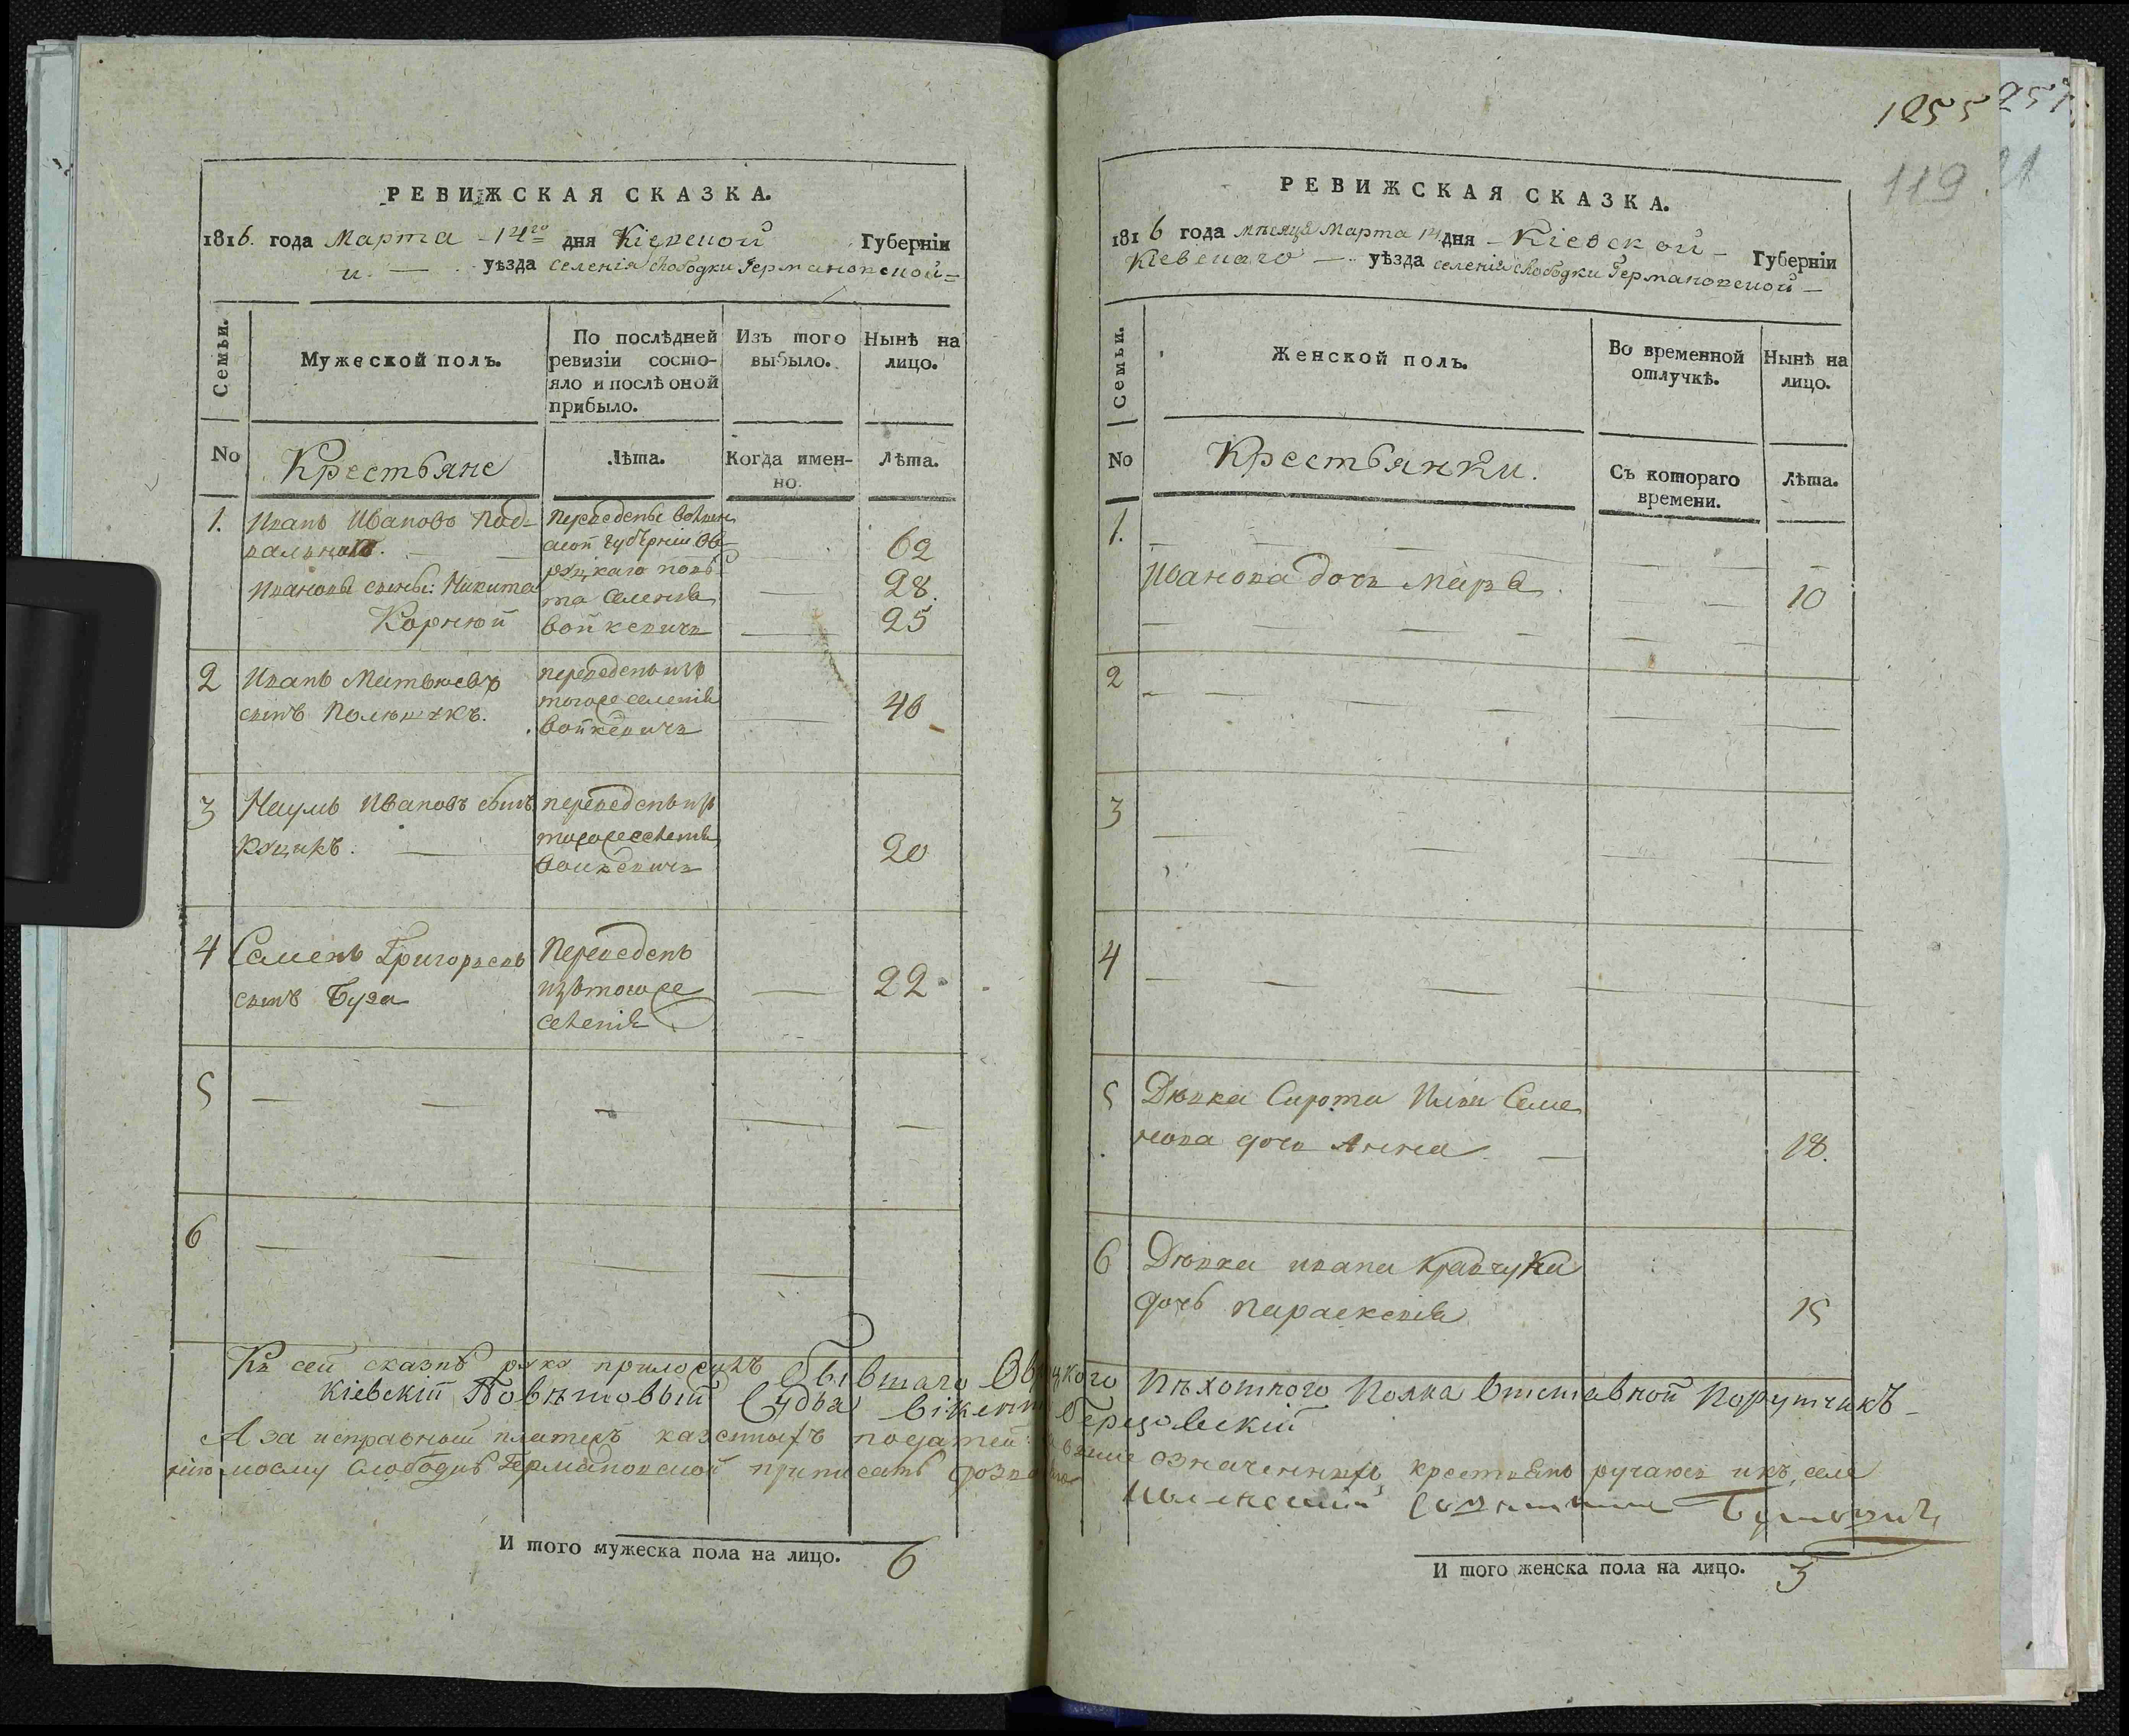 РЕВИЖСКАЯ СКАЗКА.
1816. года Марта 14го дня Кіевской Губерніи
и. уѣзда селенія слободки Германовской
Семьи.
Мужеской полъ.
По послѣдней ревизіи состояло и послѣ оной прибыло.
Изъ того выбыло.
Нынѣ на лицо.
No
Крестьяне
Лѣта.
Когда именно.
Лѣта.
1. Иванъ Ивановъ Под-
Переведены Волын-
ской Губерніи Ов-
62
ручкаго повѣ-
Ивановы сыны: Никита
та селенія
28.
Корнюй
Войкевичъ
25
2 Иванъ Матвѣевъ
переведенъ изъ
сынъ
тогоже селенія
40
Войкевичъ
3 Наумъ Ивановъ сынъ
переведенъ изъ
Куцикъ.
тогоже селенія
20
Войкевичъ
4 Семенъ Григорьевъ
Переведенъ
сынъ Буза
изъ тогоже
22
селенія
5
6
Къ сей сказкѣ руку приложилъ бывшаго Овруцкого Пѣхотного Полка Отставной Порутчикъ
Кіевскій Повѣтовый Судья Вікентій Березовскій
А за исправный платежъ казенныхъ податей за выше означенныхъ крестьянъ ручаюсь и къ селе
нію моему Слободкѣ Германовской приписать
И того мужеска пола на лицо. 6
1255 251
119. 21
РЕВИЖСКАЯ СКАЗКА.
1816 года мѣсяца Марта 14 дня Кіевской Губерніи
Кіевскаго уѣзда селенія слободки Германовской
Семьи.
Женской полъ.
Во временной отлучкѣ.
Нынѣ на лицо.
No
Крестьянки.
Съ котораго времени.
Лѣта.
1.
Иванова дочь Марѳа 10
2
3
4
5 Дѣвка Сирота Семе
нова дочь Анна 18.
6 Дѣвка Ивана Кравчука
дочь Параскевія 15
И того женска пола на лицо. 3